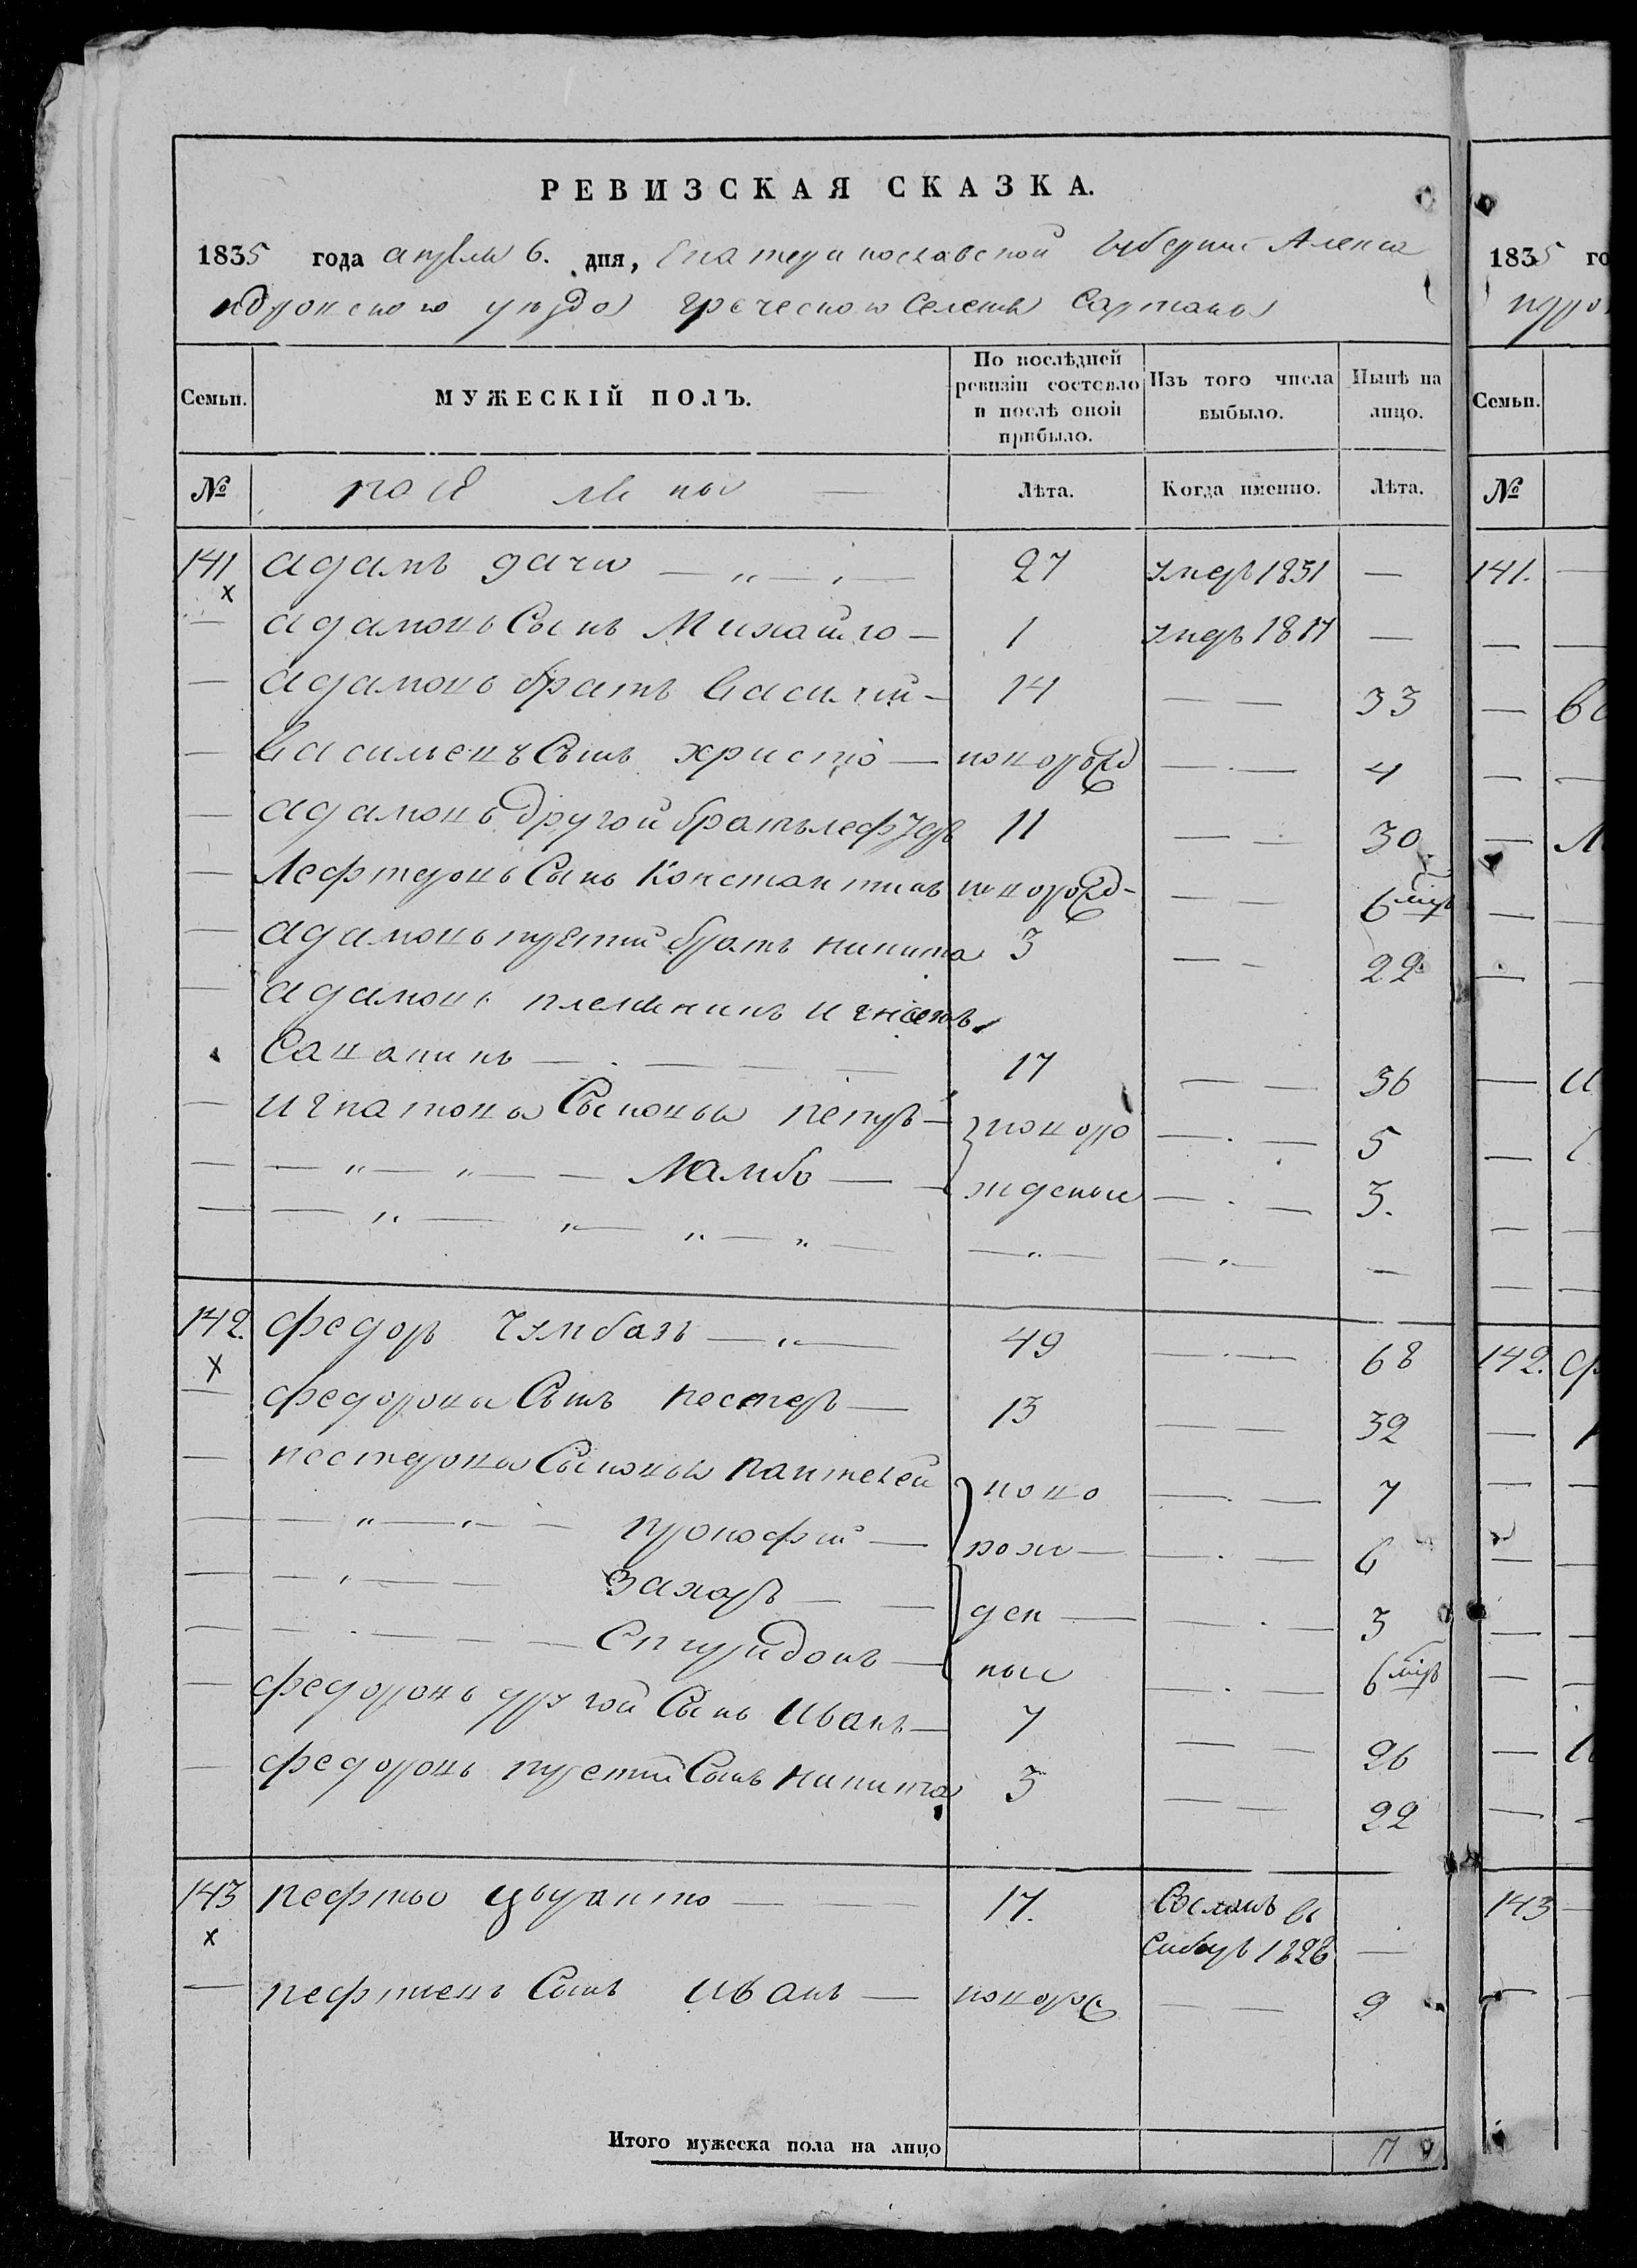 РЕВИЗСКАЯ СКАЗКА.
1835 года апреля 6. дня, Екатеринославской Губернии Алекса
ндровского уезда греческого Селения Сартаны
Семьи. МУЖЕСКІЙ ПОЛЪ. По послѣдней ревизіи состояло и послѣ оной прибыло. Изъ того числа выбыло. Нынѣ на лицо.
№ Лѣта. Когда именно. Лѣта.
141 адамъ — 27 умеръ 1831 —
х
— адамовъ Сынъ Михайло — 1 умеръ 1817 —
— адамовъ братъ василий — 14 — — 33
— васильевъ Сынъ христо — новорожд — 4
— адамовъ другой братъ 11 — 30
— Лефтеровъ Сынъ Константинъ новорожд — — 6 мцъ
— адамовъ третий братъ никита 3 — — 22
— адамовъ племянникъ игнатъ
17 — — 36
— игнатовы Сыновья петръ — новоро — 5
— — „ — „ — Ламбо — жденые — 3.
142. федоръ Чумбазъ — 49 — 68
х
— федорова Сынъ нестеръ — 13 — — 32
— нестеровы Сыновья пантелей ново — 7
— — „ — „ — прокофий — рож — — 6
— — „ — захаръ — ден — — 3
— — спиридонъ — ные — 6 мцъ
— федоровъ другой Сынъ иванъ — 7 — — 26
— федоровъ третий Сынъ никита 3 — — 22
143 — 17. Сосланъ въ
х Сибирь 1826 —
— Сынъ иванъ — новорож — — 9
Итого мужеска пола на лицо 17
1835 го
Семьи.
№
141.
142.
143